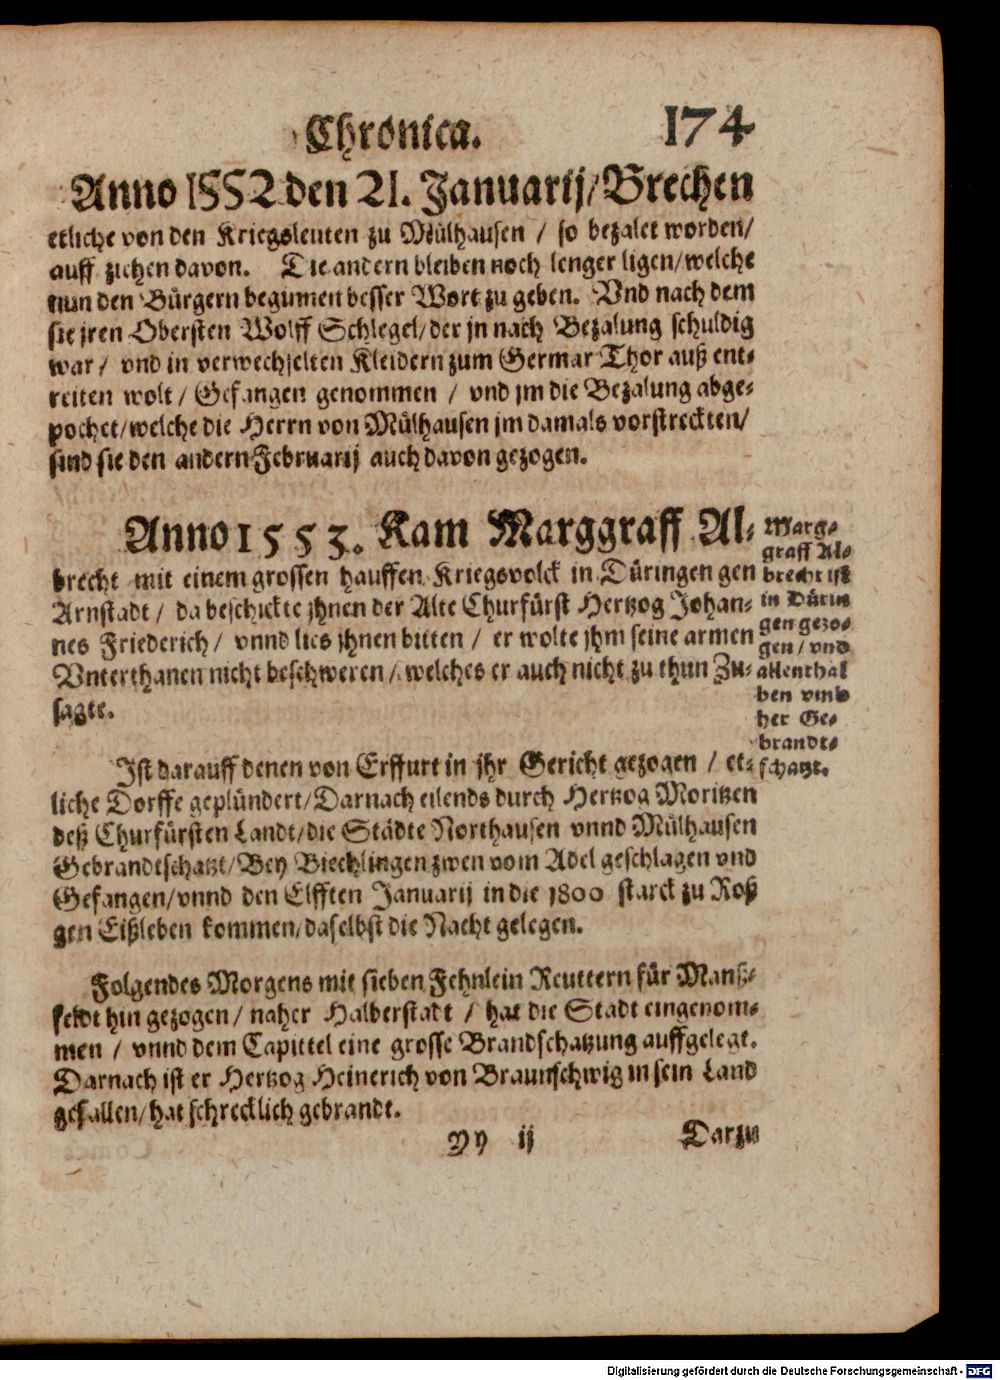 Chronica. 174
Anno 1552 den 21. Januarij/ Brechen
etliche von den Kriegsleuten zu Mülhausen / so bezalet worden/
auff ziehen davon. Die andern bleiben noch lenger ligen/ welche
nun den Bürgern begunnen besser Wort zu geben. Vnd nach dem
sie jren Obersten Wolff Schlegel/ der jn nach Bezalung schuldig
war / vnd in verwechselten Kleidern zum Germar Thor auß ent-
reiten wolt / Gefangen genommen / vnd jm die Bezalung abge-
pochet/ welche die Herrn von Mülhausen jm damals vorstreckten/
sind sie den andern Februarij auch davon gezogen.
Anno 1553. Kam Marggraff Al-
brecht mit einem grossen hauffen Kriegsvolck in Düringen gen
Arnstadt / da beschickte jhnen der Alte Churfürst Hertzog Johan-
nes Friederich / vnnd lies jhnen bitten / er wolte jhm seine armen
Vnterthanen nicht beschweren / welches er auch nicht zu thun Zu-
sagte.
Marg-
graff Al-
brecht ist
in Dürin
gen gezo-
gen / vnd
allenthal
ben vmb
her Ge-
brandt-
schatzt.
Ist darauff denen von Erffurt in jhr Gericht gezogen / et-
liche Dorffe geplündert/ Darnach eilends durch Hertzog Moritzen
deß Churfürsten Landt/ die Städte Northausen vnnd Mülhausen
Gebrandtschatzt/ Bey Biechlingen zwen vom Adel geschlagen vnd
Gefangen/ vnnd den Elfften Januarij in die 1800 starck zu Roß
gen Eißleben kommen/ daselbst die Nacht gelegen.
Folgendes Morgens mit sieben Fehnlein Reuttern für Manß-
feldt hin gezogen / naher Halberstadt / hat die Stadt eingenom-
men / vnnd dem Capittel eine grosse Brandschatzung auffgelegt.
Darnach ist er Hertzog Heinerich von Braunschwig in sein Land
gefallen/ hat schrecklich gebrandt.
Yy ij Darzu
Digitalisierung gefördert durch die Deutsche Forschungsgemeinschaft - DFG